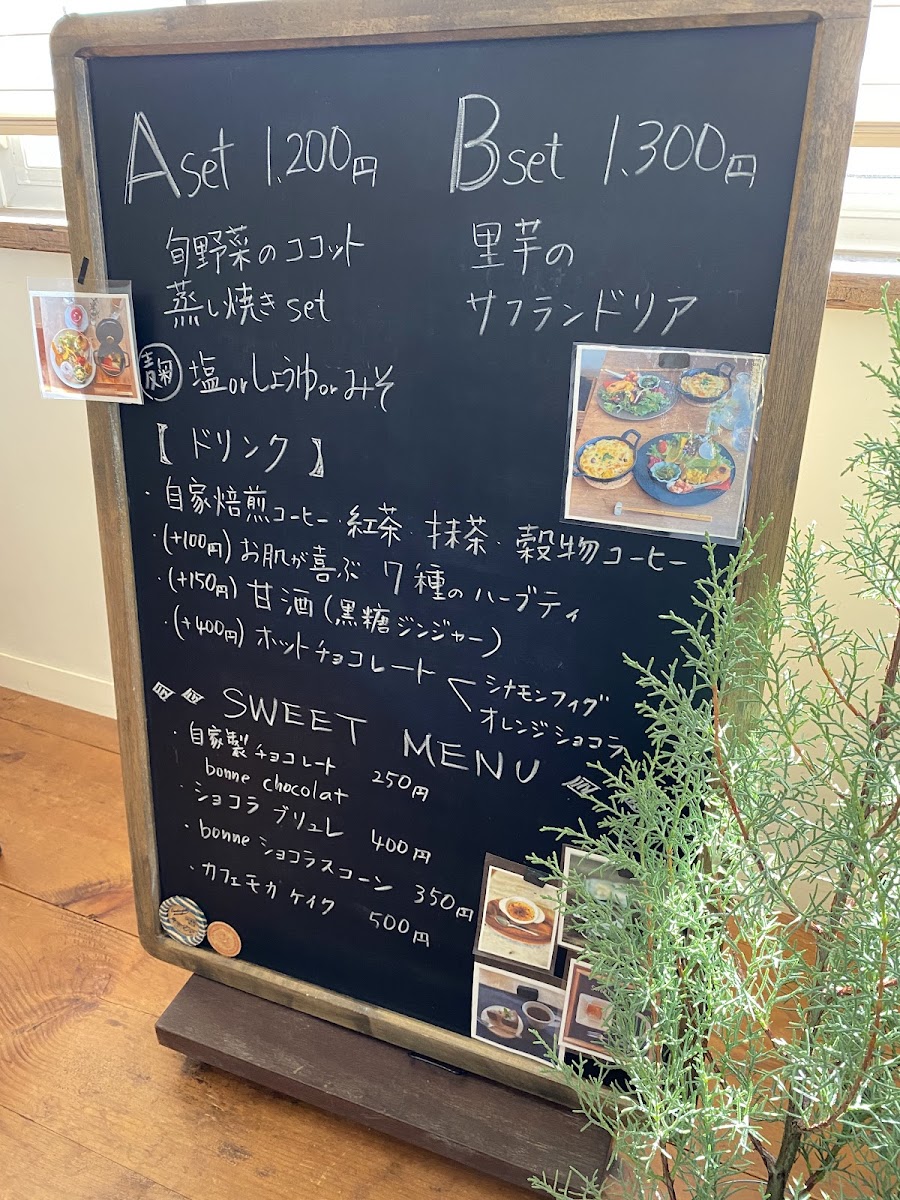 A set 1.200円
旬野菜のココット
蒸し焼き set
麹 塩 or しょうゆ or みそ
B set 1.300円
里芋の
サフランドリア
【ドリンク】
・自家焙煎コーヒー・紅茶・抹茶・穀物コーヒー
・(+100円) お肌が喜ぶ 7種のハーブティ
・(+150円) 甘酒 (黒糖ジンジャー)
・(+400円) ホットチョコレート < シナモンフィグ
オレンジショコラ
SWEET MENU
・自家製チョコレート
bonne chocolat 250円
・ショコラ ブリュレ 400円
・bonne ショコラスコーン 350円
・カフェモカ ケイク 500円